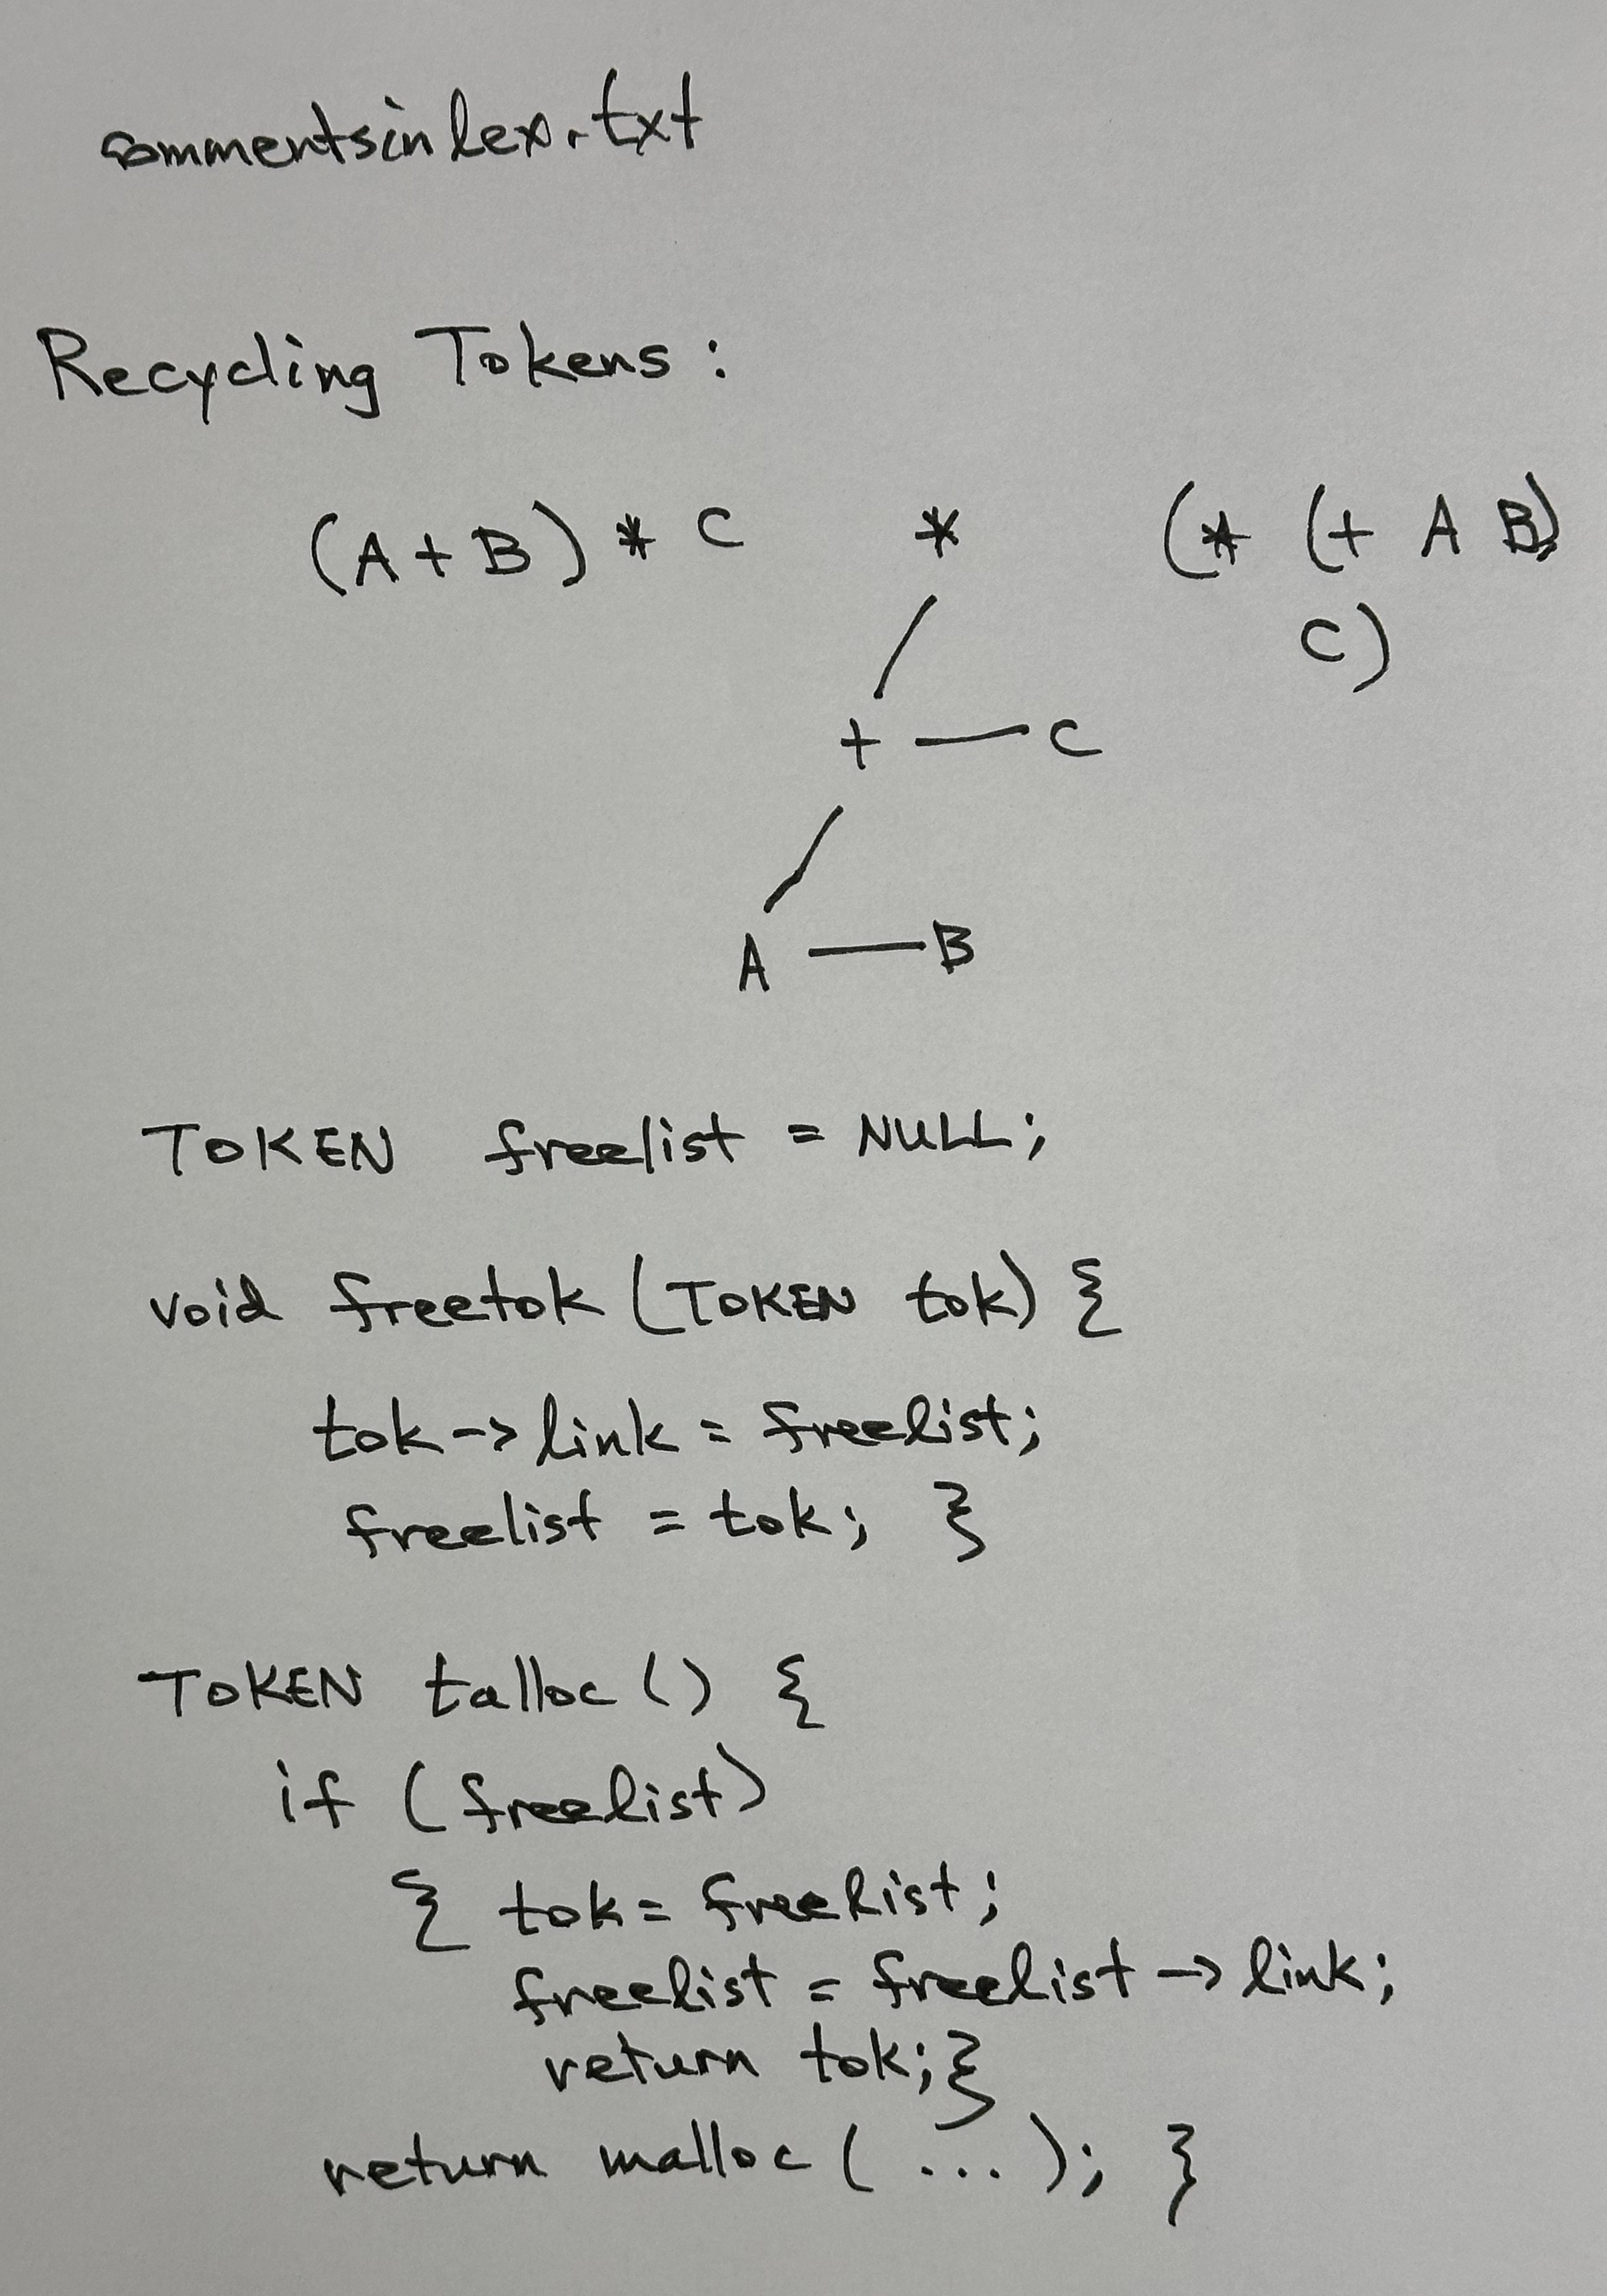 commentsinlex.txt
Recycling Tokens:
(A+B) * C * (* (+ A B)
C)
+ C
A B
TOKEN freelist = NULL;
void freetok (TOKEN tok) {
tok->link = freelist;
freelist = tok; }
TOKEN talloc () {
if (freelist)
{ tok = freelist;
freelist = freelist -> link;
return tok; }
return malloc ( ... ); }